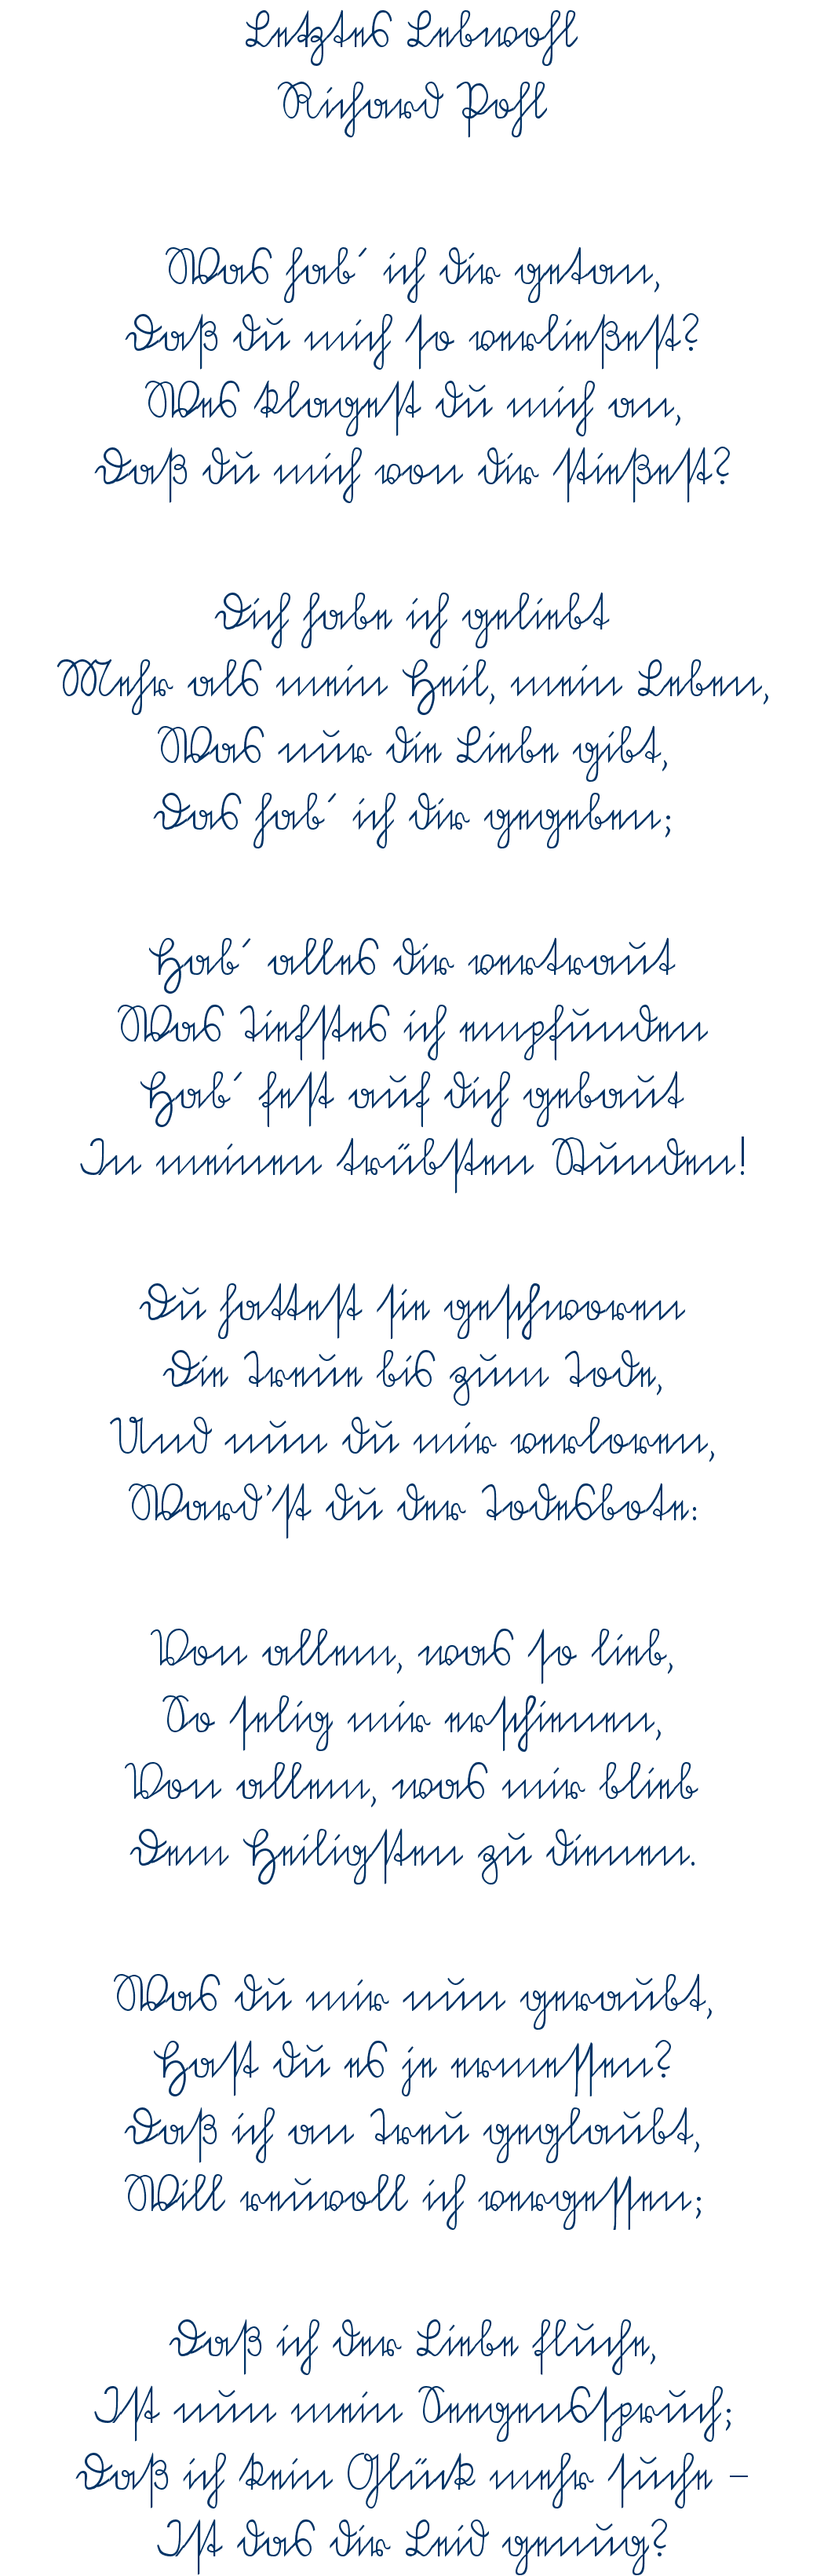 Letztes Lebwohl
Richard Pohl
Was hab´ ich dir getan,
Daß du mich so verließest?
Wes klagest du mich an,
Daß du mich von dir stießest?
Dich habe ich geliebt
Mehr als mein Heil, mein Leben,
Was nur die Liebe gibt,
Das hab´ ich dir gegeben;
Hab´ alles dir vertraut
Was Tiefstes ich empfunden
Hab´ fest auf dich gebaut
In meinen trübsten Stunden!
Du hattest sie geschworen
Die Treue bis zum Tode,
Und nun du mir verloren,
Ward’st du der Todesbote:
Von allem, was so lieb,
So selig mir erschienen,
Von allem, was mir blieb
Dem Heiligsten zu dienen.
Was du mir nun geraubt,
Hast du es je ermessen?
Daß ich an Treu geglaubt,
Will reuvoll ich vergessen;
Daß ich der Liebe fluche,
Ist nun mein Seegensspruch;
Daß ich kein Glück mehr suche –
Ist das dir Leid genug?